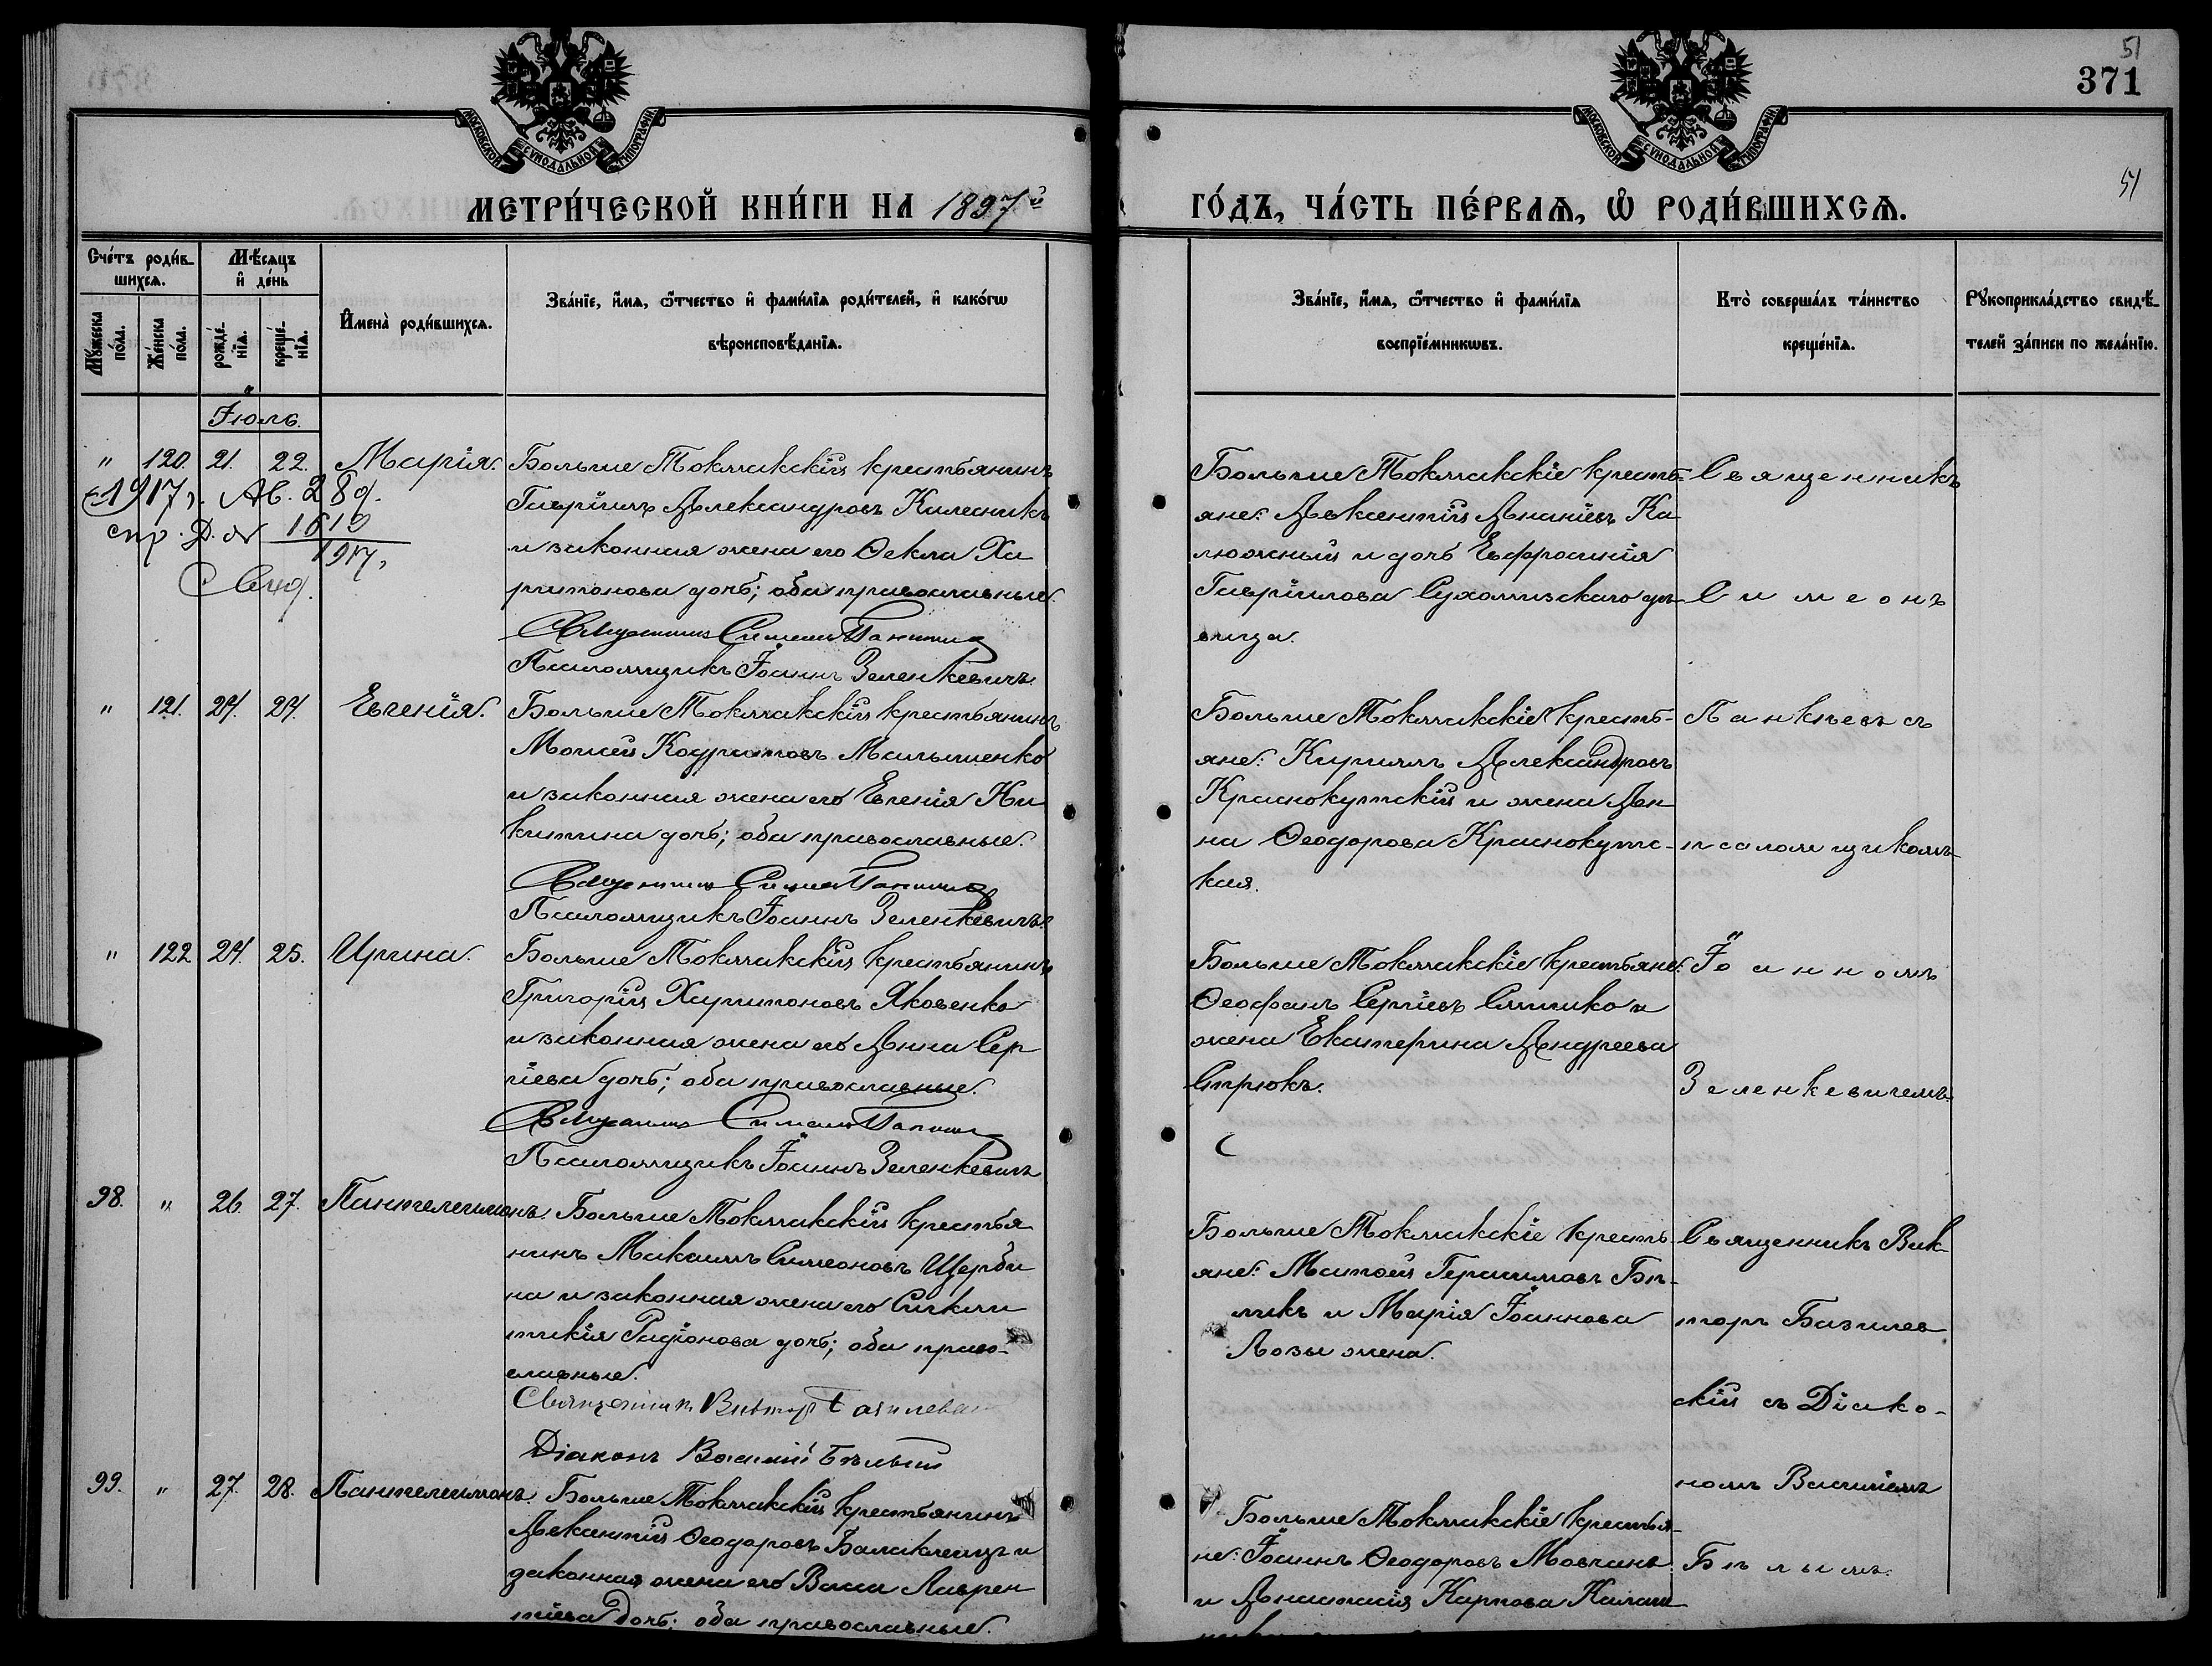 51
371
51
МОСКОВСКОЙ СѴНОДАЛЬНОЙ ТИПОГРАФІИ
МОСКОВСКОЙ СѴНОДАЛЬНОЙ ТИПОГРАФІИ
МЕТРИ́ЧЕСКОЙ КНИ́ГИ НА 1897й
ГО́ДЪ, ЧА́СТЬ ПЕ́РВАѦ, Ѿ РОДИ́ВШИХСѦ.
Сче́тъ роди́в-
шихсѧ.
Мꙋ́жеска по́ла.
Же́нска по́ла.
Мѣ́сѧцъ
и҆ де́нь
рожде́-
нїѧ.
креще́-
нїѧ.
И҆мена̀ роди́вшихсѧ.
Зва́нїе, и҆́мѧ, ѻ҆́тчество и҆ фами́лїѧ роди́телей, и҆ како́гѡ
вѣроисповѣ́данїѧ.
Зва́нїе, и҆́мѧ, ѻ҆́тчество и҆ фами́лїѧ
воспрїе́мникѡвъ.
Кто̀ соверша́лъ та́инство
креще́нїѧ.
Рꙋкоприкла́дство свидѣ́-
телей за́писи по жела́нїю.
Іюль.
" 120. 21. 22. Марія. Больше Токмакскій крестьянинъ
Гавріилъ Александровъ Калесникъ
и законная жена его Ѳекла Ха
ритонова дочь; оба православные.
1917 г. Ав. 28 д.
1610
1917,
Священникъ Симеонъ Панкѣевъ
Псаломщикъ Іоаннъ Зеленкевичъ.
Больше Токмакскіе кресть-
яне: Авксентій Ананіевъ Ка
люжный и дочь Евфросинія
Гавріилова Сухомизскаго дѣ-
вица.
Священникъ
Симеонъ
" 121. 24. 24. Евгенія. Больше Токмакскій крестьянинъ
Моисей Кодратовъ Малышенко
и законная жена его Евгенія Ни
китина дочь; оба православные.
Священникъ Симеонъ Панкѣевъ
Псаломщикъ Іоаннъ Зеленкевичъ.
Больше Токмакскіе кресть-
яне: Кириллъ Александровъ
Краснокутскій и жена Ан
на Ѳеодорова Краснокутс-
кая.
Панкѣевъ съ
псаломщикомъ
" 122 24. 25. Ирина. Больше Токмакскій крестьянинъ
Григорій Харитоновъ Яковенко
и законная жена его Анна Сер
гіева дочь; оба православные.
Священникъ Симеонъ Панкѣевъ
Псаломщикъ Іоаннъ Зеленкевичъ
Больше Токмакскіе крестьяне:
Ѳеофанъ Сергіевъ и
жена Екатерина Андреева
Стрюкъ.
Іоанномъ
Зеленкевичемъ.
98. " 26. 27. Пантелеимонъ. Больше Токмакскій крестья
нинъ Максимъ Симеоновъ Щерби
на и законная жена его Сикли
тикія Радіонова дочь; оба право-
славные.
Священникъ Викторъ Базилев
Діаконъ Василій Бѣлый
Больше Токмакскіе кресть-
яне: Матѳей Герасимовъ Бѣ-
ликъ и Марія Іоаннова
Лозы жена.
Священникъ Вик
торъ Базилев
скій съ Діако-
номъ Василіемъ
99. " 27. 28. Пантелеимонъ. Больше Токмакскій крестьянинъ
Авксентій Ѳеодоровъ Балаклеицъ и
законная жена его Васса Лаврен
тіева дочь; оба православные.
Больше Токмакскіе крестья-
не: Іоаннъ Ѳеодоровъ Мовчанъ
и Анастасія Карпова
Бѣлымъ.